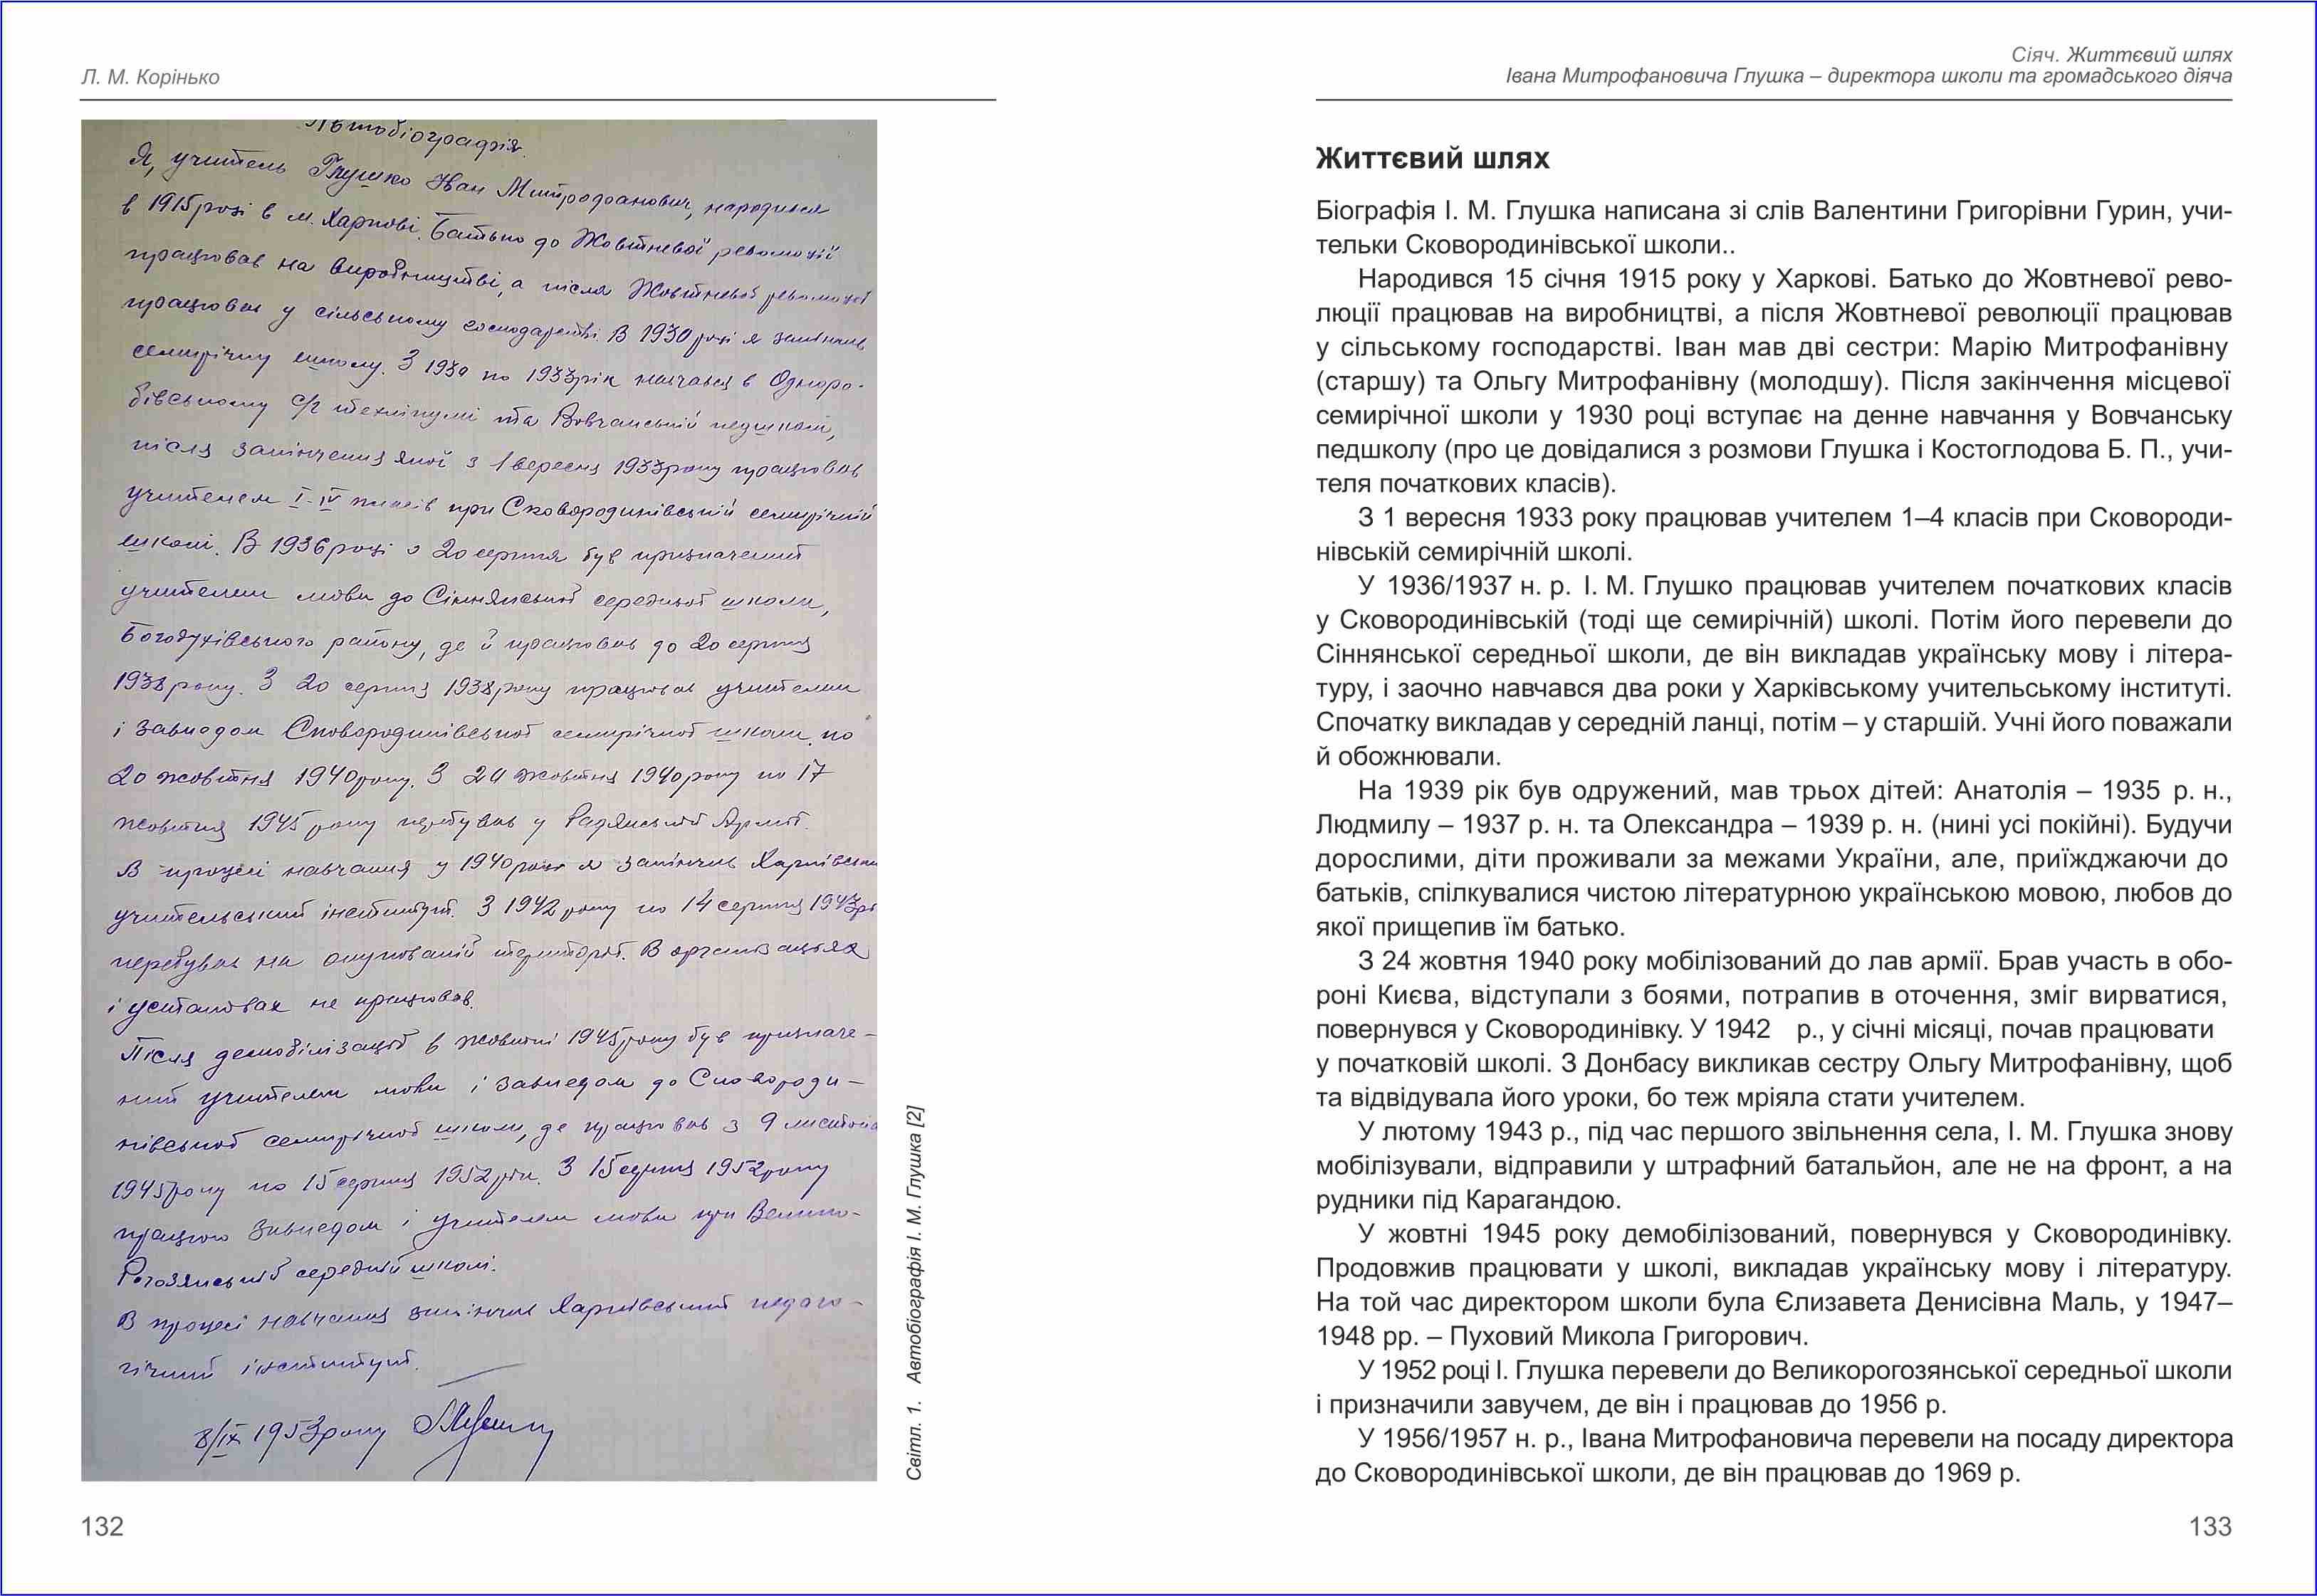 Л. М. Корінько
Автобіографія.
Я, учитель Глушко Іван Митрофанович, народився
в 1915 році в м. Харкові. Батько до Жовтневої революції
працював на виробництві, а після Жовтневої революції
працював у сільському господарстві. В 1930 році я закінчив
семирічну школу. З 1930 по 1933 рік навчався в Одноро-
бівському с/г технікумі та Вовчанській педшколі,
після закінчення якої з 1 вересня 1933 року працював
учителем I-IV класів при Сковородинівській семирічній
школі. В 1936 році з 20 серпня був призначений
учителем мови до Сіннянської середньої школи,
Богодухівського району, де й працював до 20 серпня
1938 року. З 20 серпня 1938 року працював учителем
і завпедом Сковородинівської семирічної школи по
20 жовтня 1940 року. З 24 жовтня 1940 року по 17
жовтня 1945 року перебував у Радянській Армії.
В процесі навчання у 1940 році я закінчив Харківськи
учительський інститут. З 1942 року по 14 серпня 1943 ро
перебував на окупованій території. В організаціях
і установах не працював.
Після демобілізації в жовтні 1945 року був призначе-
ний учителем мови і завпедом до Сковороди-
нівської семирічної школи, де працював з 9 листопа
1945 року по 15 серпня 1952 рік. З 15 серпня 1952 року
працюю завпедом і учителем мови при Велико-
Рогозянській середній школі.
В процесі навчання закінчив Харківський педаго-
гічний інститут.
8/IX 1953 року
Світл. 1. Автобіографія І. М. Глушка [2]
132
Сіяч. Життєвий шлях
Івана Митрофановича Глушка – директора школи та громадського діяча
Життєвий шлях
Біографія І. М. Глушка написана зі слів Валентини Григорівни Гурин, учи-
тельки Сковородинівської школи..
Народився 15 січня 1915 року у Харкові. Батько до Жовтневої рево-
люції працював на виробництві, а після Жовтневої революції працював
у сільському господарстві. Іван мав дві сестри: Марію Митрофанівну
(старшу) та Ольгу Митрофанівну (молодшу). Після закінчення місцевої
семирічної школи у 1930 році вступає на денне навчання у Вовчанську
педшколу (про це довідалися з розмови Глушка і Костоглодова Б. П., учи-
теля початкових класів).
З 1 вересня 1933 року працював учителем 1–4 класів при Сковороди-
нівській семирічній школі.
У 1936/1937 н. р. І. М. Глушко працював учителем початкових класів
у Сковородинівській (тоді ще семирічній) школі. Потім його перевели до
Сіннянської середньої школи, де він викладав українську мову і літера-
туру, і заочно навчався два роки у Харківському учительському інституті.
Спочатку викладав у середній ланці, потім – у старшій. Учні його поважали
й обожнювали.
На 1939 рік був одружений, мав трьох дітей: Анатолія – 1935 р. н.,
Людмилу – 1937 р. н. та Олександра – 1939 р. н. (нині усі покійні). Будучи
дорослими, діти проживали за межами України, але, приїжджаючи до
батьків, спілкувалися чистою літературною українською мовою, любов до
якої прищепив їм батько.
З 24 жовтня 1940 року мобілізований до лав армії. Брав участь в обо-
роні Києва, відступали з боями, потрапив в оточення, зміг вирватися,
повернувся у Сковородинівку. У 1942 р., у січні місяці, почав працювати
у початковій школі. З Донбасу викликав сестру Ольгу Митрофанівну, щоб
та відвідувала його уроки, бо теж мріяла стати учителем.
У лютому 1943 р., під час першого звільнення села, І. М. Глушка знову
мобілізували, відправили у штрафний батальйон, але не на фронт, а на
рудники під Карагандою.
У жовтні 1945 року демобілізований, повернувся у Сковородинівку.
Продовжив працювати у школі, викладав українську мову і літературу.
На той час директором школи була Єлизавета Денисівна Маль, у 1947–
1948 рр. – Пуховий Микола Григорович.
У 1952 році І. Глушка перевели до Великорогозянської середньої школи
і призначили завучем, де він і працював до 1956 р.
У 1956/1957 н. р., Івана Митрофановича перевели на посаду директора
до Сковородинівської школи, де він працював до 1969 р.
133